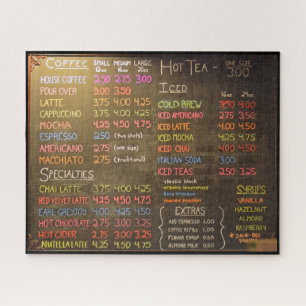 COFFEE SMALL MEDIUM LARGE
12oz 16oz 20oz
HOUSE COFFEE 2.50 2.75 3.00
POUR OVER 3.00 3.50
LATTE 3.75 4.00 4.25
CAPPUCCINO 3.75 4.00 4.25
MOCHA 4.25 4.50 4.75
ESPRESSO 2.50 (two shots)
AMERICANO 2.75 (one size)
MACCHIATO 2.75 (traditional)
SPECIALTIES
CHAI LATTE 3.75 4.00 4.25
RED VELVET LATTE 4.25 4.50 4.75
EARL GREGGY 4.25 4.50
HOT CHOCOLATE 2.75 3.00 3.25
HOT CIDER 2.75 3.00 3.25
NUTELLA LATTE 4.25 4.50 4.75
HOT TEA - ONE SIZE
3.00
ICED
16oz 24oz
COLD BREW 3.50 4.00
ICED AMERICANO 2.75 3.25
ICED LATTE 4.00 4.50
ICED MOCHA 4.50 5.00
ICED CHAI 4.00 4.50
ITALIAN SODA 2.50 3.00
ICED TEAS 2.50 3.25
EXTRAS
ADD ESPRESSO 1.00
COFFEE REFILL 0.50
FLAVOR SYRUP 0.50
ALMOND MILK 0.50
SYRUPS
VANILLA
HAZELNUT
ALMOND
RASPBERRY